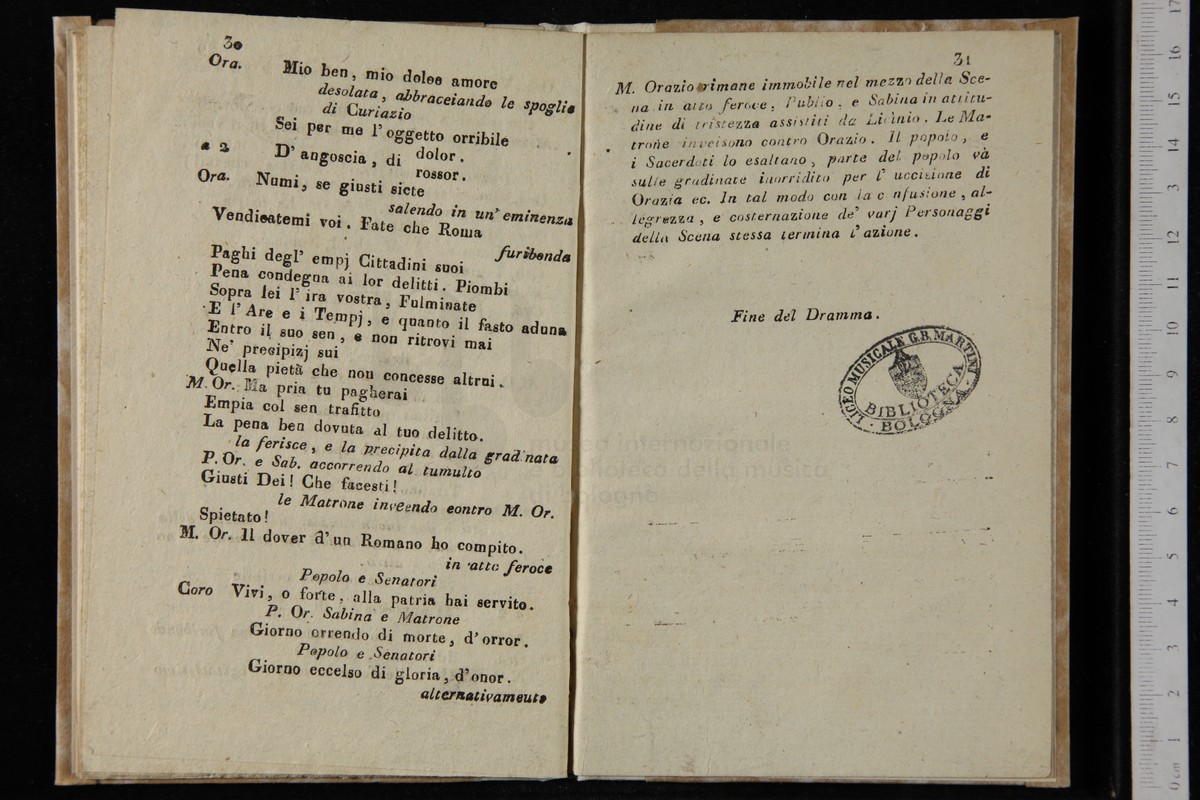 30
Ora. Mio ben, mio dolee amore
desolata, abbraceiando le spoglie
di Curiazio
Sei per me l'oggetto orribile
a 2 D'angoscia, di dolor.
rossor.
Ora. Numi, se giusti siete
salendo in un' eminenza
Vendieatemi voi. Fate che Roma
furibonda
Paghi degl' empj Cittadini suoi
Pena condegna ai lor delitti. Piombi
Sopra lei l'ira vostra, Fulminate
E l'Are e i Tempj, e quanto il fasto aduna
Entro il suo sen, e non ritrovi mai
Ne' preeipizj sui
Quella pietà che non concesse altrui.
M. Or. Ma pria tu pagherai
Empia col sen trafitto
La pena ben dovuta al tuo delitto.
la ferisce, e la precipita dalla grad nata
P. Or. e Sab. accorrendo al tumulto
Giusti Dei! Che facesti!
le Matrone inveendo eontro M. Or.
Spietato!
M. Or. Il dover d'un Romano ho compito.
in atto feroce
Popolo e Senatori
Coro Vivi, o forte, alla patria hai servito.
P. Or. Sabina e Matrone
Giorno orrendo di morte, d'orror.
Popolo e Senatori
Giorno eccelso di gloria, d'onor.
alternativameute
31
M. Orazio rimane immobile nel mezzo della Sce-
na in atto feroce, Publio, e Sabina in attitu-
dine di tristezza assistiti da Licinio. Le Ma-
trone inveisono contro Orazio. Il popolo, e
i Sacerdoti lo esaltano, parte del popolo và
sulle gradinate inorridito per l' uccisione di
Orazia ec. In tal modo con la c nfusione, al-
legrezza, e costernazione de' varj Personaggi
della Scena stessa termina l' azione.
Fine del Dramma.
LICEO MUSICALE G.B. MARTINI
BIBLIOTECA
BOLOGNA
museo internazionale
e biblioteca della musica
di bologna
17
16
15
14
13
12
11
10
9
8
7
6
5
4
3
2
1
0 cm